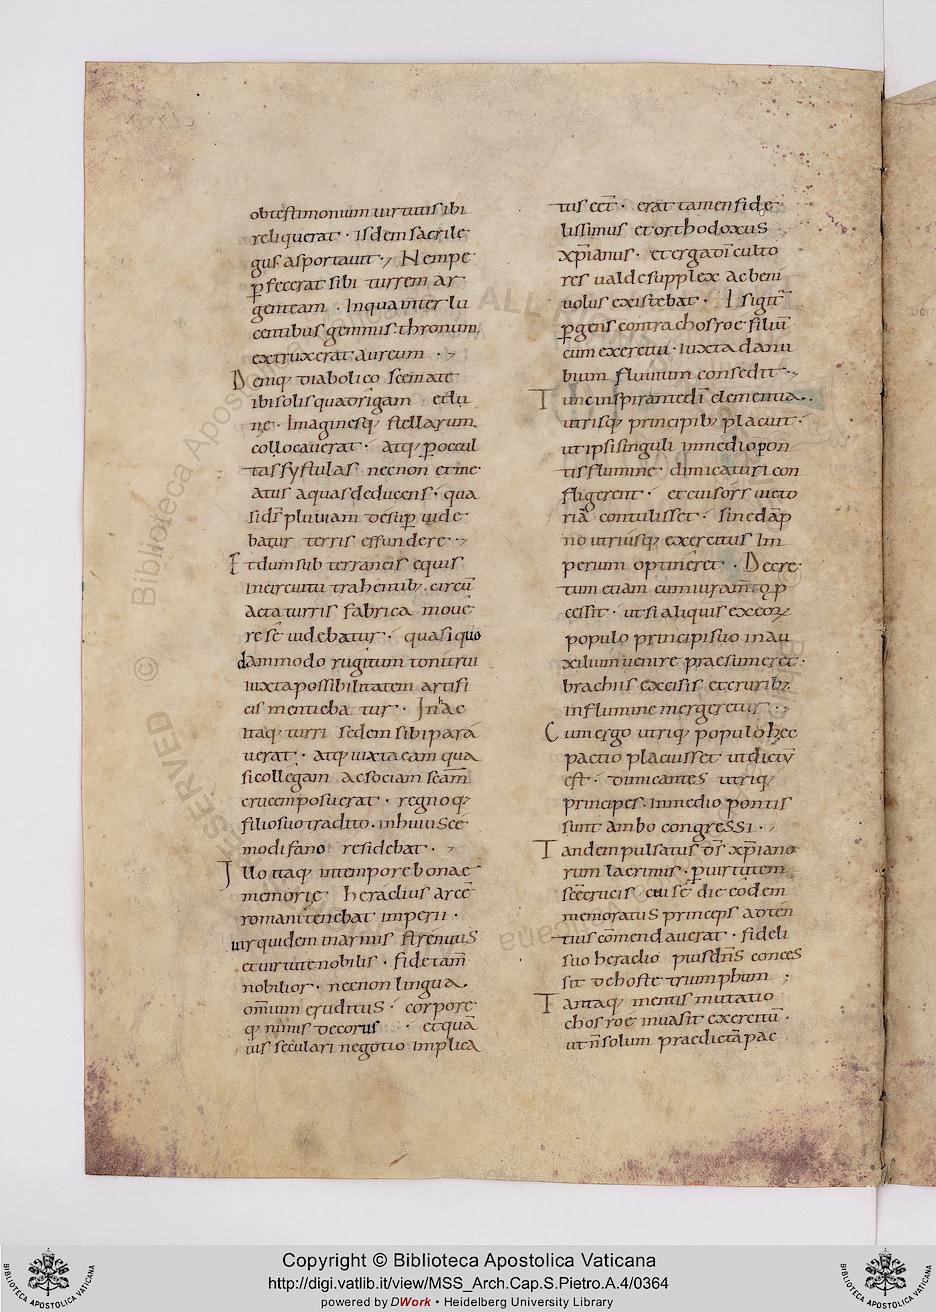 obtestimonium uirtutis ibi
reliquerat · isdem sacrile
gus asportauit ·, Nempe
ꝑfecerat sibi turrem ar
genteam · Inqua inter lu
centibus gemmis · thronum
extruxerat aureum · ,
Deniq; diabolico scemate
ibi solis quadrigam et lu
ne · Imaginesq; stellarum
collocauerat · atq; ꝑoccul
tas fyſtulas necnon et me
atus aquas deducens · qua
si dſ pluuiam desuꝑ uide
batur terris effundere · ,
Et dum sub terraneis equis
incircuitu trahentib; · circū
acta turris fabrica moue
re se uidebatur · quasi quo
dammodo rugitum tonitrui
iuxta possibilitatem artifi
cis mentieba tur · In hac
itaq; turri sedem sibi para
uerat · atq; iuxta eam qua
si collegam ac sociam scām
crucem posuerat · regnoq;
filio suo tradito · inhuiusce
modi fano residebat · ,
Illo itaq; intempore bonae
memorię heraclius arcē
romani tenebat imperii ·
uir quidem in armis strenuus
et uirtute nobilis · fide tam̄
nobilior · necnon lingua ·
om̄ium eruditus · corpore
q; nimis decorus · et quā
uis seculari negotio implica
tus eēt · erat tamen fide
lissimus et orthodoxus
xp̄ianus · et erga dī culto
res ualde supplex ac beni
uolus existebat · Is igit̄
ꝑgens contra chosroe filiū
cum exercitu · iuxta danu
bium fluuium consedit · ,
Tunc inspirante dī clementia ·
utrisq; principib; placuit ·
ut ipsi singuli inmedio pon
tis flumine dimicaturi con
fligerent · et cui sors uicto
riā contulisset · sine dāp
no utriusq; exercitus Im
perium optineret · Decre
tum etiam cum iuram̄to ꝓ
cessit · ut si aliquis excoꝝ
populo principi suo in au
xilium uenire praesumeret ·
brachiis excisis et crurib;
in flumine mergeretur · ,
Cum ergo utriq; populo hęc
pactio placuisset ut dictū
est · dimicantes utriq;
principes · Inmedio pontis
sunt ambo congressi · ,
Tandem pulsatus dn̄s xp̄iano
rum lacrimis · ꝑuirtutem
scē crucis cui se die eodem
memoratus princeps adten
tius cōmendauerat · fideli
suo heraclio pius dn̄s conces
sit dehoste triumphum ;
Tantaq; mentis mutatio
chosroe inuasit exercitū ·
ut n̄ solum praedictā pac
Copyright © Biblioteca Apostolica Vaticana
http://digi.vatlib.it/view/MSS_Arch.Cap.S.Pietro.A.4/0364
powered by DWork • Heidelberg University Library
BIBLIOTECA APOSTOLICA VATICANA
BIBLIOTECA APOSTOLICA VATICANA